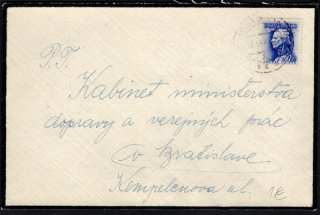 P.T.
Kabinet ministerstva
dopravy a verejných prác
v Bratislave
Kempelenova ul.
1€